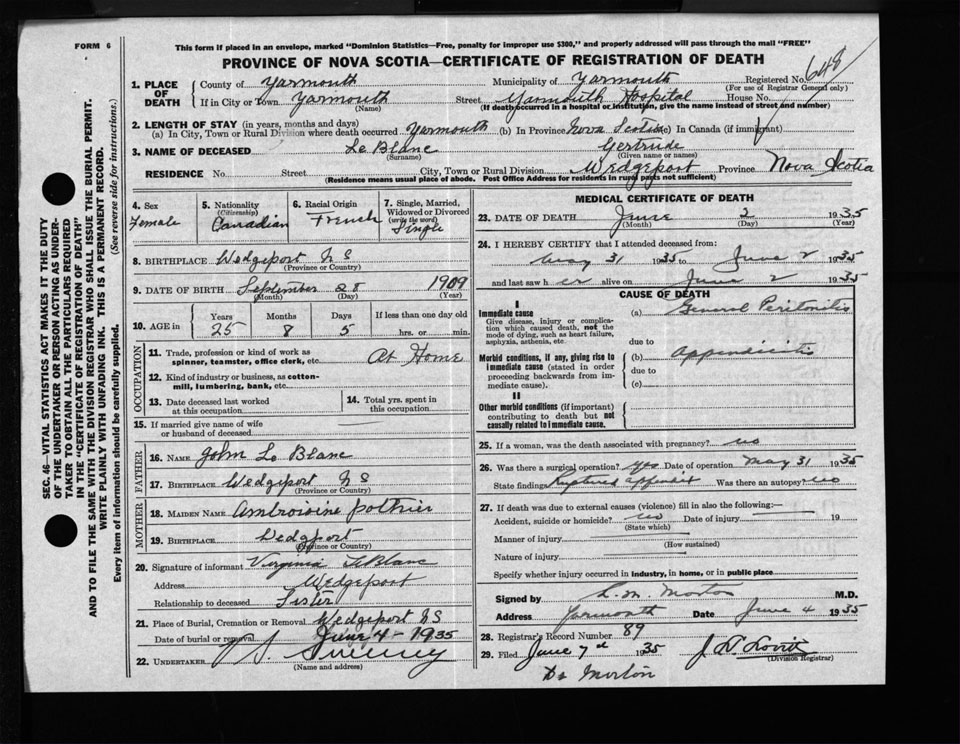 FORM 6
This form if placed in an envelope, marked "Dominion Statistics—Free, penalty for improper use $300," and properly addressed will pass through the mail "FREE"
PROVINCE OF NOVA SCOTIA—CERTIFICATE OF REGISTRATION OF DEATH
1. PLACE OF DEATH County of Yarmouth Municipality of Yarmouth Registered No. 648
(For use of Registrar General only)
If in City or Town Yarmouth Street Yarmouth Hospital House No.
(Name) (If death occurred in a hospital or institution, give the name instead of street and number)
2. LENGTH OF STAY (in years, months and days)
(a) In City, Town or Rural Division where death occurred Yarmouth (b) In Province Nova Scotia (c) In Canada (if immigrant)
3. NAME OF DECEASED Le Blanc Gertrude
(Surname) (Given name or names)
RESIDENCE No. Street City, Town or Rural Division Wedgeport Province Nova Scotia
(Residence means usual place of abode. Post Office Address for residents in rural parts not sufficient)
4. Sex Female
5. Nationality (Citizenship) Canadian
6. Racial Origin French
7. Single, Married, Widowed or Divorced (write the word) Single
8. BIRTHPLACE Wedgeport NS
(Province or Country)
9. DATE OF BIRTH September 28 1909
(Month) (Day) (Year)
10. AGE in Years Months Days If less than one day old
25 8 5 hrs. or min.
OCCUPATION
11. Trade, profession or kind of work as spinner, teamster, office clerk, etc. At Home
12. Kind of industry or business, as cotton-mill, lumbering, bank, etc.
13. Date deceased last worked at this occupation
14. Total yrs. spent in this occupation
15. If married give name of wife or husband of deceased —
FATHER
16. NAME John Le Blanc
17. BIRTHPLACE Wedgeport NS
(Province or Country)
MOTHER
18. MAIDEN NAME Ambroisine Pothier
19. BIRTHPLACE Wedgport
(Province or Country)
20. Signature of informant Virginia LeBlanc
Address Wedgeport
Relationship to deceased Sister
21. Place of Burial, Cremation or Removal Wedgeport NS
Date of burial or removal June 4 - 1935
22. UNDERTAKER Sweeney
(Name and address)
MEDICAL CERTIFICATE OF DEATH
23. DATE OF DEATH June 3 1935
(Month) (Day) (Year)
24. I HEREBY CERTIFY that I attended deceased from:
May 31 1935 to June 2 1935
and last saw h er alive on June 2 1935
CAUSE OF DEATH
I
Immediate cause
Give disease, injury or complication which caused death, not the mode of dying, such as heart failure, asphyxia, asthenia, etc.
(a) General Peritonitis
due to
Morbid conditions, if any, giving rise to immediate cause (stated in order proceeding backwards from immediate cause).
(b) Appendicitis
due to
(c)
II
Other morbid conditions (if important) contributing to death but not causally related to immediate cause.
25. If a woman, was the death associated with pregnancy? no
26. Was there a surgical operation? Yes Date of operation May 31 1935
State findings Ruptured appendix Was there an autopsy? no
27. If death was due to external causes (violence) fill in also the following:—
Accident, suicide or homicide? no Date of injury 19
(State which)
Manner of injury
(How sustained)
Nature of injury
Specify whether injury occurred in industry, in home, or in public place
Signed by L. M. Morton M.D.
Address Yarmouth Date June 4 1935
28. Registrar's Record Number 89
29. Filed June 7 1935
(Division Registrar)
Dr Morton
SEC. 46—VITAL STATISTICS ACT MAKES IT THE DUTY
OF THE UNDERTAKER OR PERSON ACTING AS UNDER-
TAKER TO OBTAIN ALL THE PARTICULARS REQUIRED
IN THE "CERTIFICATE OF REGISTRATION OF DEATH"
AND TO FILE THE SAME WITH THE DIVISION REGISTRAR WHO SHALL ISSUE THE BURIAL PERMIT.
WRITE PLAINLY WITH UNFADING INK. THIS IS A PERMANENT RECORD.
Every item of information should be carefully supplied. (See reverse side for instructions.)